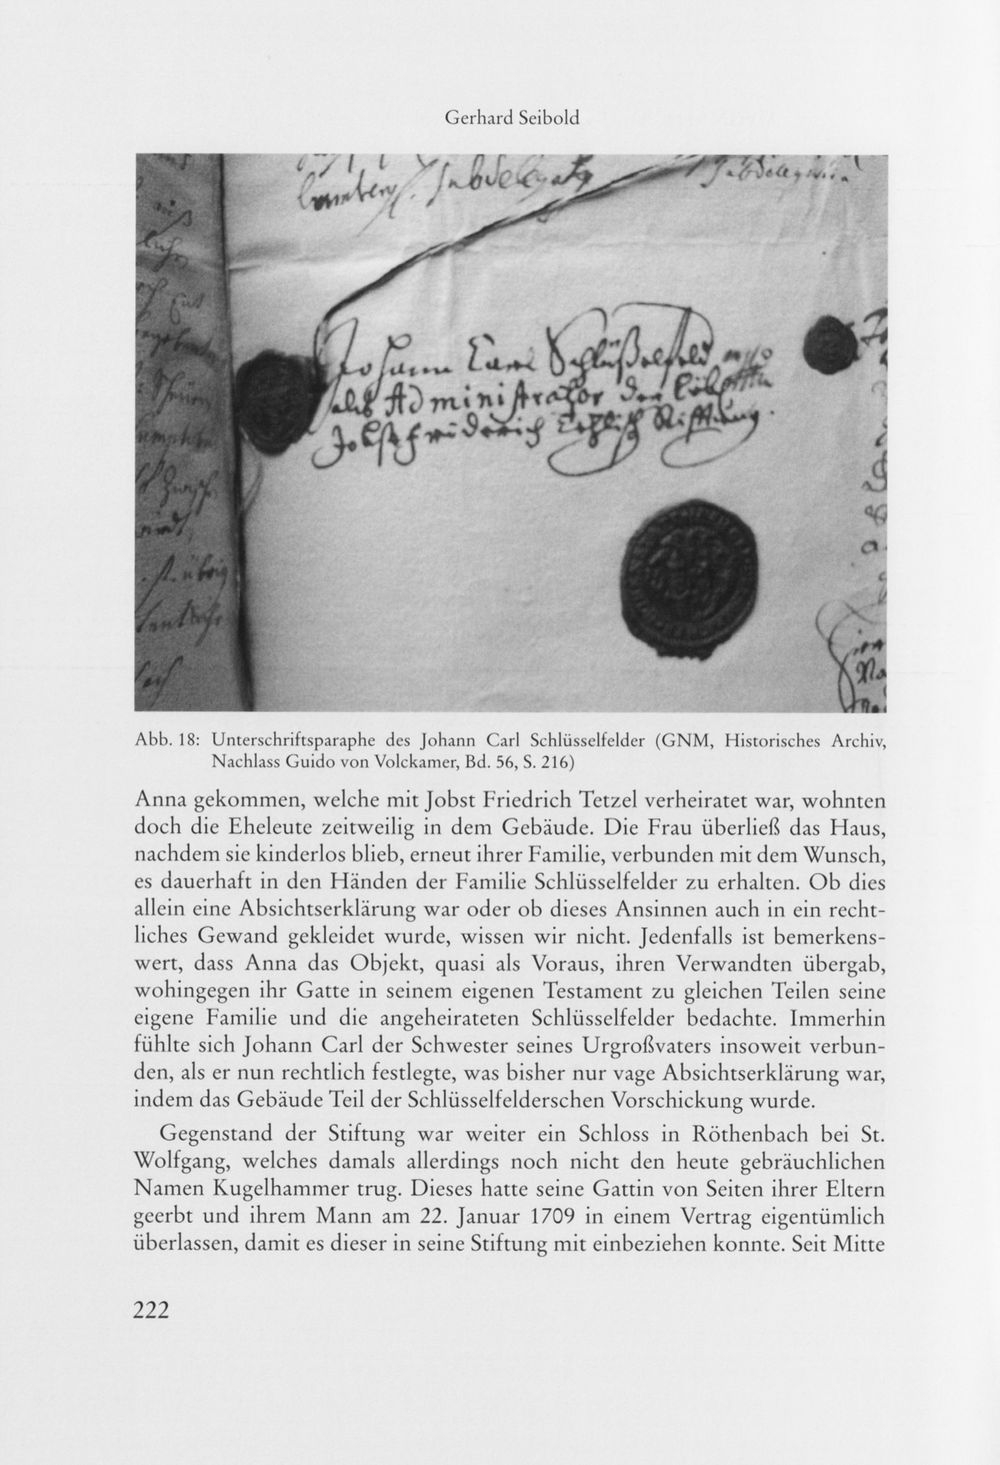 Gerhard Seibold
Johann Carl Schlüßelfeld
als Administrator der Löbl
Jobst friderich Tezlisch Stifftung.
Abb. 18: Unterschriftsparaphe des Johann Carl Schlüsselfelder (GNM, Historisches Archiv,
Nachlass Guido von Volckamer, Bd. 56, S. 216)
Anna gekommen, welche mit Jobst Friedrich Tetzel verheiratet war, wohnten
doch die Eheleute zeitweilig in dem Gebäude. Die Frau überließ das Haus,
nachdem sie kinderlos blieb, erneut ihrer Familie, verbunden mit dem Wunsch,
es dauerhaft in den Händen der Familie Schlüsselfelder zu erhalten. Ob dies
allein eine Absichtserklärung war oder ob dieses Ansinnen auch in ein recht-
liches Gewand gekleidet wurde, wissen wir nicht. Jedenfalls ist bemerkens-
wert, dass Anna das Objekt, quasi als Voraus, ihren Verwandten übergab,
wohingegen ihr Gatte in seinem eigenen Testament zu gleichen Teilen seine
eigene Familie und die angeheirateten Schlüsselfelder bedachte. Immerhin
fühlte sich Johann Carl der Schwester seines Urgroßvaters insoweit verbun-
den, als er nun rechtlich festlegte, was bisher nur vage Absichtserklärung war,
indem das Gebäude Teil der Schlüsselfelderschen Vorschickung wurde.
Gegenstand der Stiftung war weiter ein Schloss in Röthenbach bei St.
Wolfgang, welches damals allerdings noch nicht den heute gebräuchlichen
Namen Kugelhammer trug. Dieses hatte seine Gattin von Seiten ihrer Eltern
geerbt und ihrem Mann am 22. Januar 1709 in einem Vertrag eigentümlich
überlassen, damit es dieser in seine Stiftung mit einbeziehen konnte. Seit Mitte
222